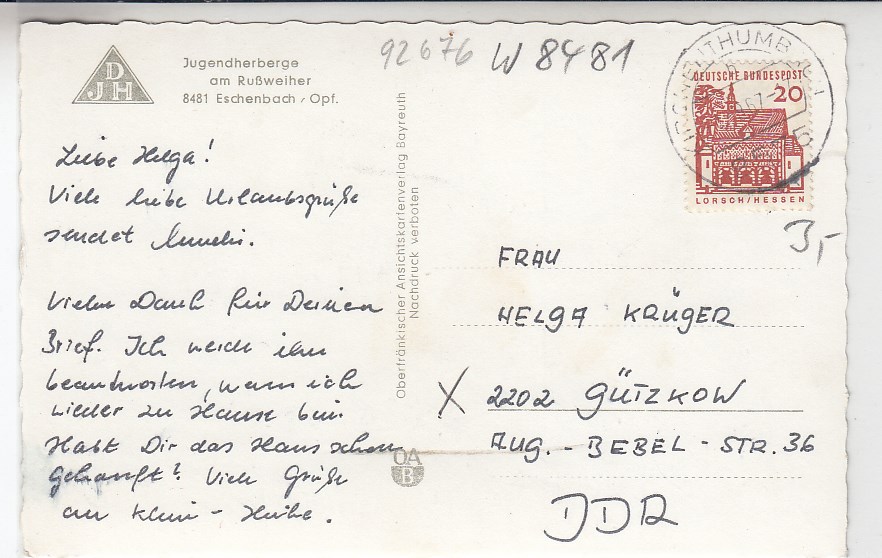 D
JH
Jugendherberge
am Rußweiher
8481 Eschenbach / Opf.
92676 W 8481
DEUTSCHE BUNDESPOST
20
LORSCH/HESSEN
3,-
Liebe Helga!
Viele liebe Urlaubsgrüße
sendet
Vielen Dank für Deinen
Brief. Ich werde ihn
beantworten, wenn ich
wieder zu Hause bin.
Habt Ihr das Haus schon
gekauft? Viele Grüße
an Klein-
Oberfränkischer Ansichtskartenverlag Bayreuth
Nachdruck verboten
OA
B
FRAU
HELGA KRÜGER
X 2202 GÜTZKOW
AUG.-BEBEL-STR. 36
DDR